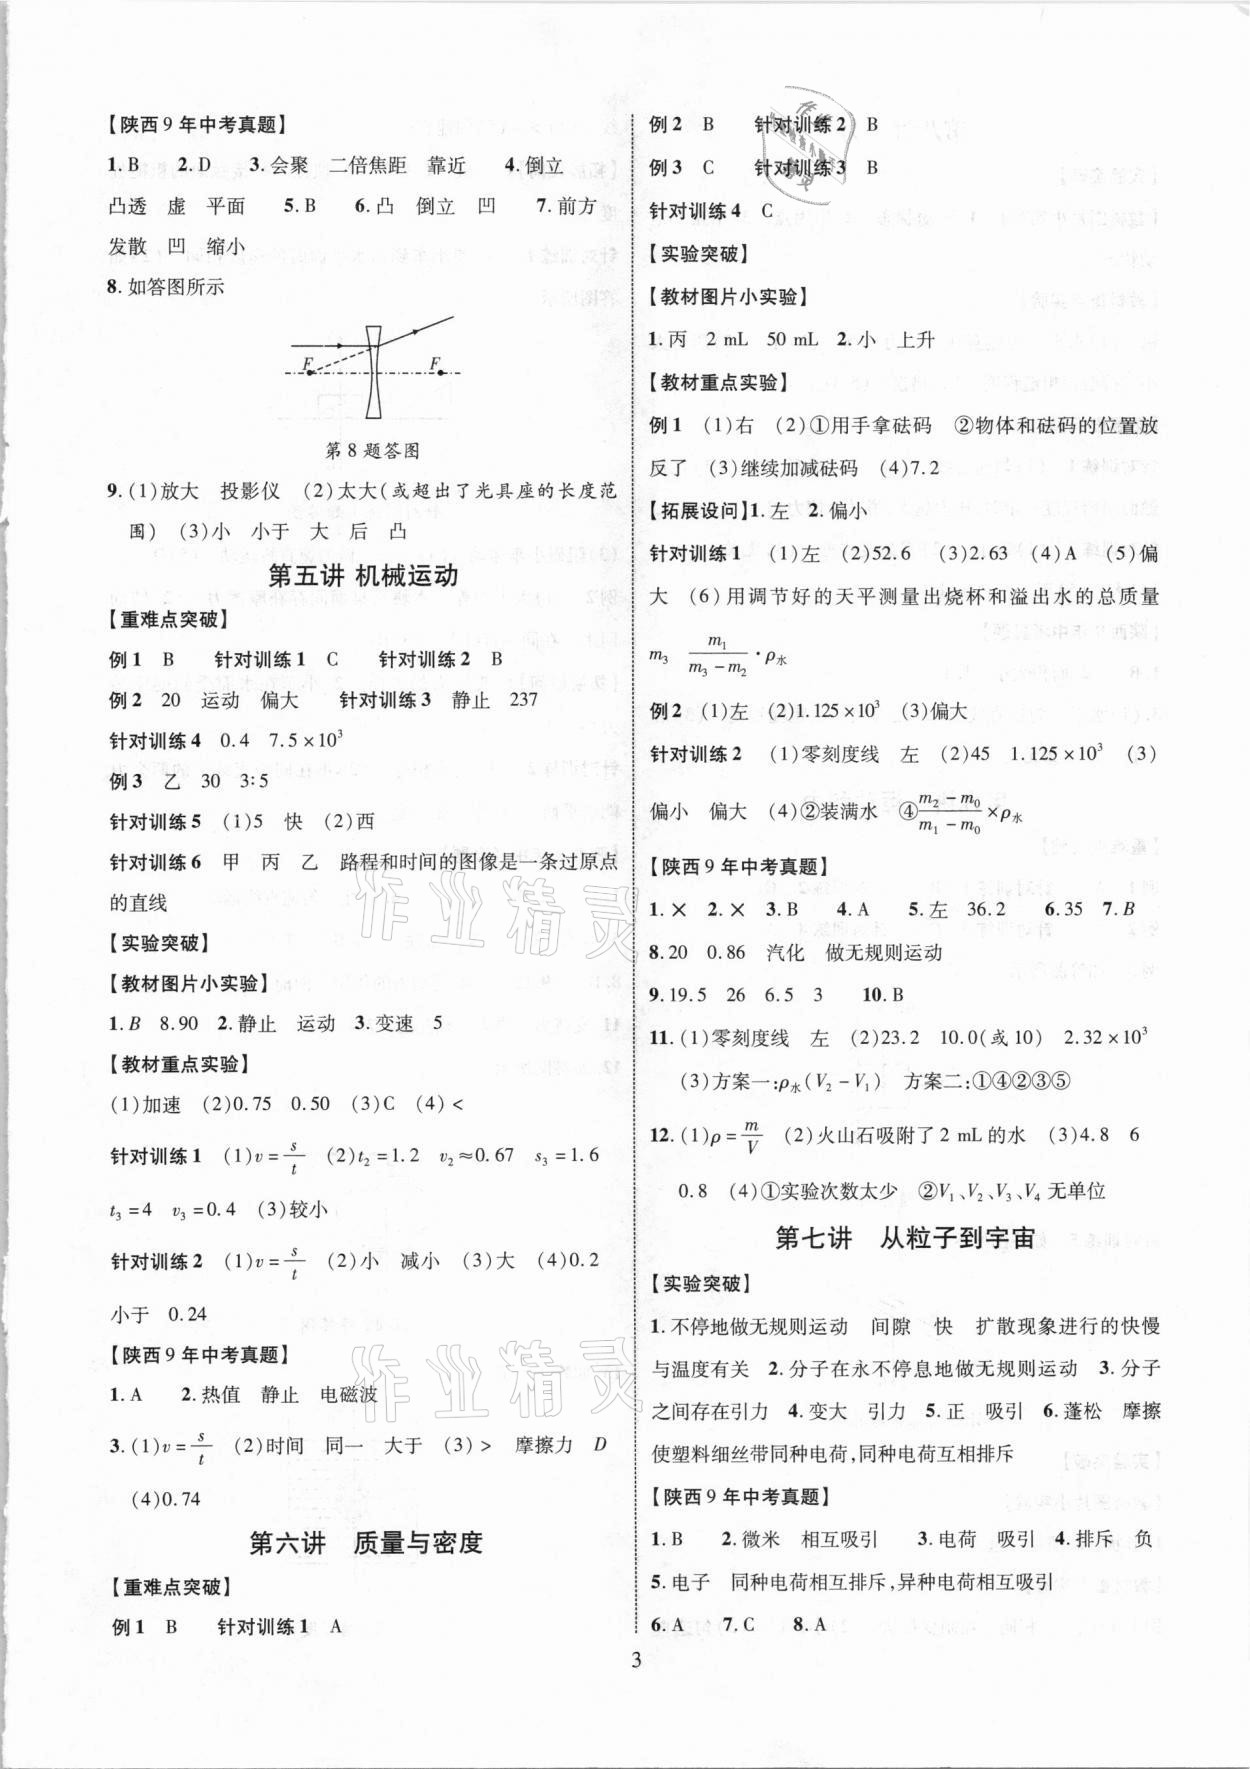 【陕西9年中考真题】
1. B  2. D  3. 会聚  二倍焦距  靠近  4. 倒立
凸透  虚  平面  5. B  6. 凸  倒立  凹  7. 前方
发散  凹  缩小
8. 如答图所示
F  F
第8题答图
9. (1)放大  投影仪  (2)太大(或超出了光具座的长度范
围)  (3)小  小于  大  后  凸
第五讲 机械运动
【重难点突破】
例1  B  针对训练1  C  针对训练2  B
例2  20  运动  偏大  针对训练3  静止  237
针对训练4  0.4  7.5×10³
例3  乙  30  3∶5
针对训练5  (1)5  快  (2)西
针对训练6  甲  丙  乙  路程和时间的图像是一条过原点
的直线
【实验突破】
【教材图片小实验】
1. B  8.90  2. 静止  运动  3. 变速  5
【教材重点实验】
(1)加速  (2)0.75  0.50  (3)C  (4)<
针对训练1  (1)v=s/t  (2)t₂=1.2  v₂≈0.67  s₃=1.6
t₃=4  v₃=0.4  (3)较小
针对训练2  (1)v=s/t  (2)小  减小  (3)大  (4)0.2
小于  0.24
【陕西9年中考真题】
1. A  2. 热值  静止  电磁波
3. (1)v=s/t  (2)时间  同一  大于  (3)>  摩擦力  D
(4)0.74
第六讲  质量与密度
【重难点突破】
例1  B  针对训练1  A
例2  B  针对训练2  B
例3  C  针对训练3  B
针对训练4  C
【实验突破】
【教材图片小实验】
1. 丙  2 mL  50 mL  2. 小  上升
【教材重点实验】
例1  (1)右  (2)①用手拿砝码  ②物体和砝码的位置放
反了  (3)继续加减砝码  (4)7.2
【拓展设问】1. 左  2. 偏小
针对训练1  (1)左  (2)52.6  (3)2.63  (4)A  (5)偏
大  (6)用调节好的天平测量出烧杯和溢出水的总质量
m₃  m₁/(m₃-m₂)·ρ水
例2  (1)左  (2)1.125×10³  (3)偏大
针对训练2  (1)零刻度线  左  (2)45  1.125×10³  (3)
偏小  偏大  (4)②装满水  ④(m₂-m₀)/(m₁-m₀)×ρ水
【陕西9年中考真题】
1. ×  2. ×  3. B  4. A  5. 左  36.2  6. 35  7. B
8. 20  0.86  汽化  做无规则运动
9. 19.5  26  6.5  3  10. B
11. (1)零刻度线  左  (2)23.2  10.0(或10)  2.32×10³
(3)方案一:ρ水(V₂-V₁)  方案二:①④②③⑤
12. (1)ρ=m/V  (2)火山石吸附了2 mL的水  (3)4.8  6
0.8  (4)①实验次数太少  ②V₁、V₂、V₃、V₄无单位
第七讲  从粒子到宇宙
【实验突破】
1. 不停地做无规则运动  间隙  快  扩散现象进行的快慢
与温度有关  2. 分子在永不停息地做无规则运动  3. 分子
之间存在引力  4. 变大  引力  5. 正  吸引  6. 蓬松  摩擦
使塑料细丝带同种电荷,同种电荷互相排斥
【陕西9年中考真题】
1. B  2. 微米  相互吸引  3. 电荷  吸引  4. 排斥  负
5. 电子  同种电荷相互排斥,异种电荷相互吸引
6. A  7. C  8. A
3
作业精灵
作业精灵